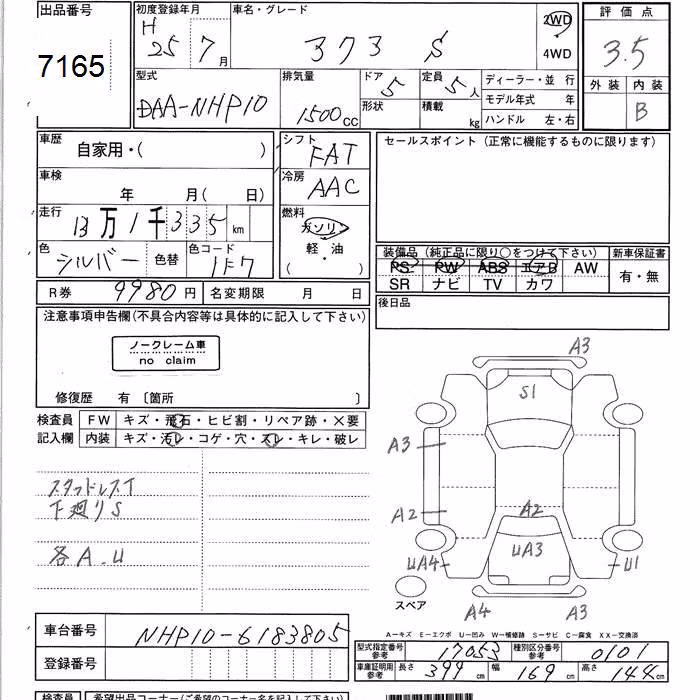 出品番号
7165
初度登録年月
H
25 7 月
車名・グレード
373 S
2WD
4WD
評価点
3.5
外装 内装
B
型式
DAA-NHP10
排気量
1500 CC
ドア 5
形状
定員 5人
積載 kg
ディーラー・並行
モデル年式 年
ハンドル 左・右
車歴
自家用・( )
車検
年 月( 日)
走行
13万1千335km
色
シルバー 色替
色コード
1F7
シフト
FAT
冷房
AAC
燃料
ガソリン
軽・油
( )
セールスポイント (正常に機能するものに限ります)
装備品 (純正品に限り○をつけて下さい)
PS PW ABS エアB AW
SR ナビ TV カワ
新車保証書
有・無
後日品
R券 9980円
名変期限 月 日
注意事項申告欄(不具合内容等は具体的に記入して下さい)
ノークレーム車
no claim
修復歴 有 〔箇所 〕
検査員
記入欄
FW キズ・飛石・ヒビ割・リペア跡・×要
内装 キズ・汚レ・コゲ・穴・スレ・キレ・破レ
スタッドレスT
下廻りS
各A.U
A3
S1
A3
A2
A2
UA3
UA4
U1
A4
A3
スペア
A-キズ E-エクボ U-凹み W-補修跡 S-サビ C-腐食 XX-交換済
車台番号 NHP10-6183805
登録番号
型式指定番号
参考
17053
種別区分番号
参考
0101
車庫証明用
参考
長さ 399cm 幅 169cm 高さ 144cm
検査員 希望出品コーナー(ご希望のコーナー名を記入して下さい)